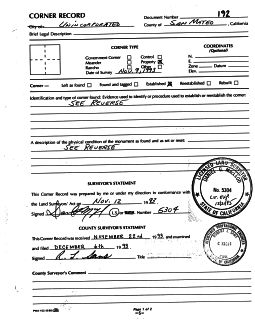 CORNER RECORD
Document Number 192
City of UNINCORPORATED County of SAN MATEO, California
Brief Legal Description
CORNER TYPE
COORDINATES
(Optional)
Government Corner Control
Meander Property
Rancho Other
Date of Survey NOV. 9, 1993
N.
E.
Zone Datum
Elev.
Corner — Left as found Found and tagged Established Reestablished Rebuilt
Identification and type of corner found: Evidence used to identify or procedure used to establish or reestablish the corner:
SEE REVERSE
A description of the physical condition of the monument as found and as set or reset:
SEE REVERSE
SURVEYOR'S STATEMENT
This Corner Record was prepared by me or under my direction in conformance with
the Land Surveyors' Act on NOV. 12 1993.
Signed L.S. Number 5304
LICENSED LAND SURVEYOR
No. 5304
STATE OF CALIFORNIA
COUNTY SURVEYOR'S STATEMENT
This Corner Record was received NOVEMBER 22nd 1993 and examined
and filed DECEMBER 6th 1993.
Signed Title
County Surveyor's Comment
Page 1 of 2